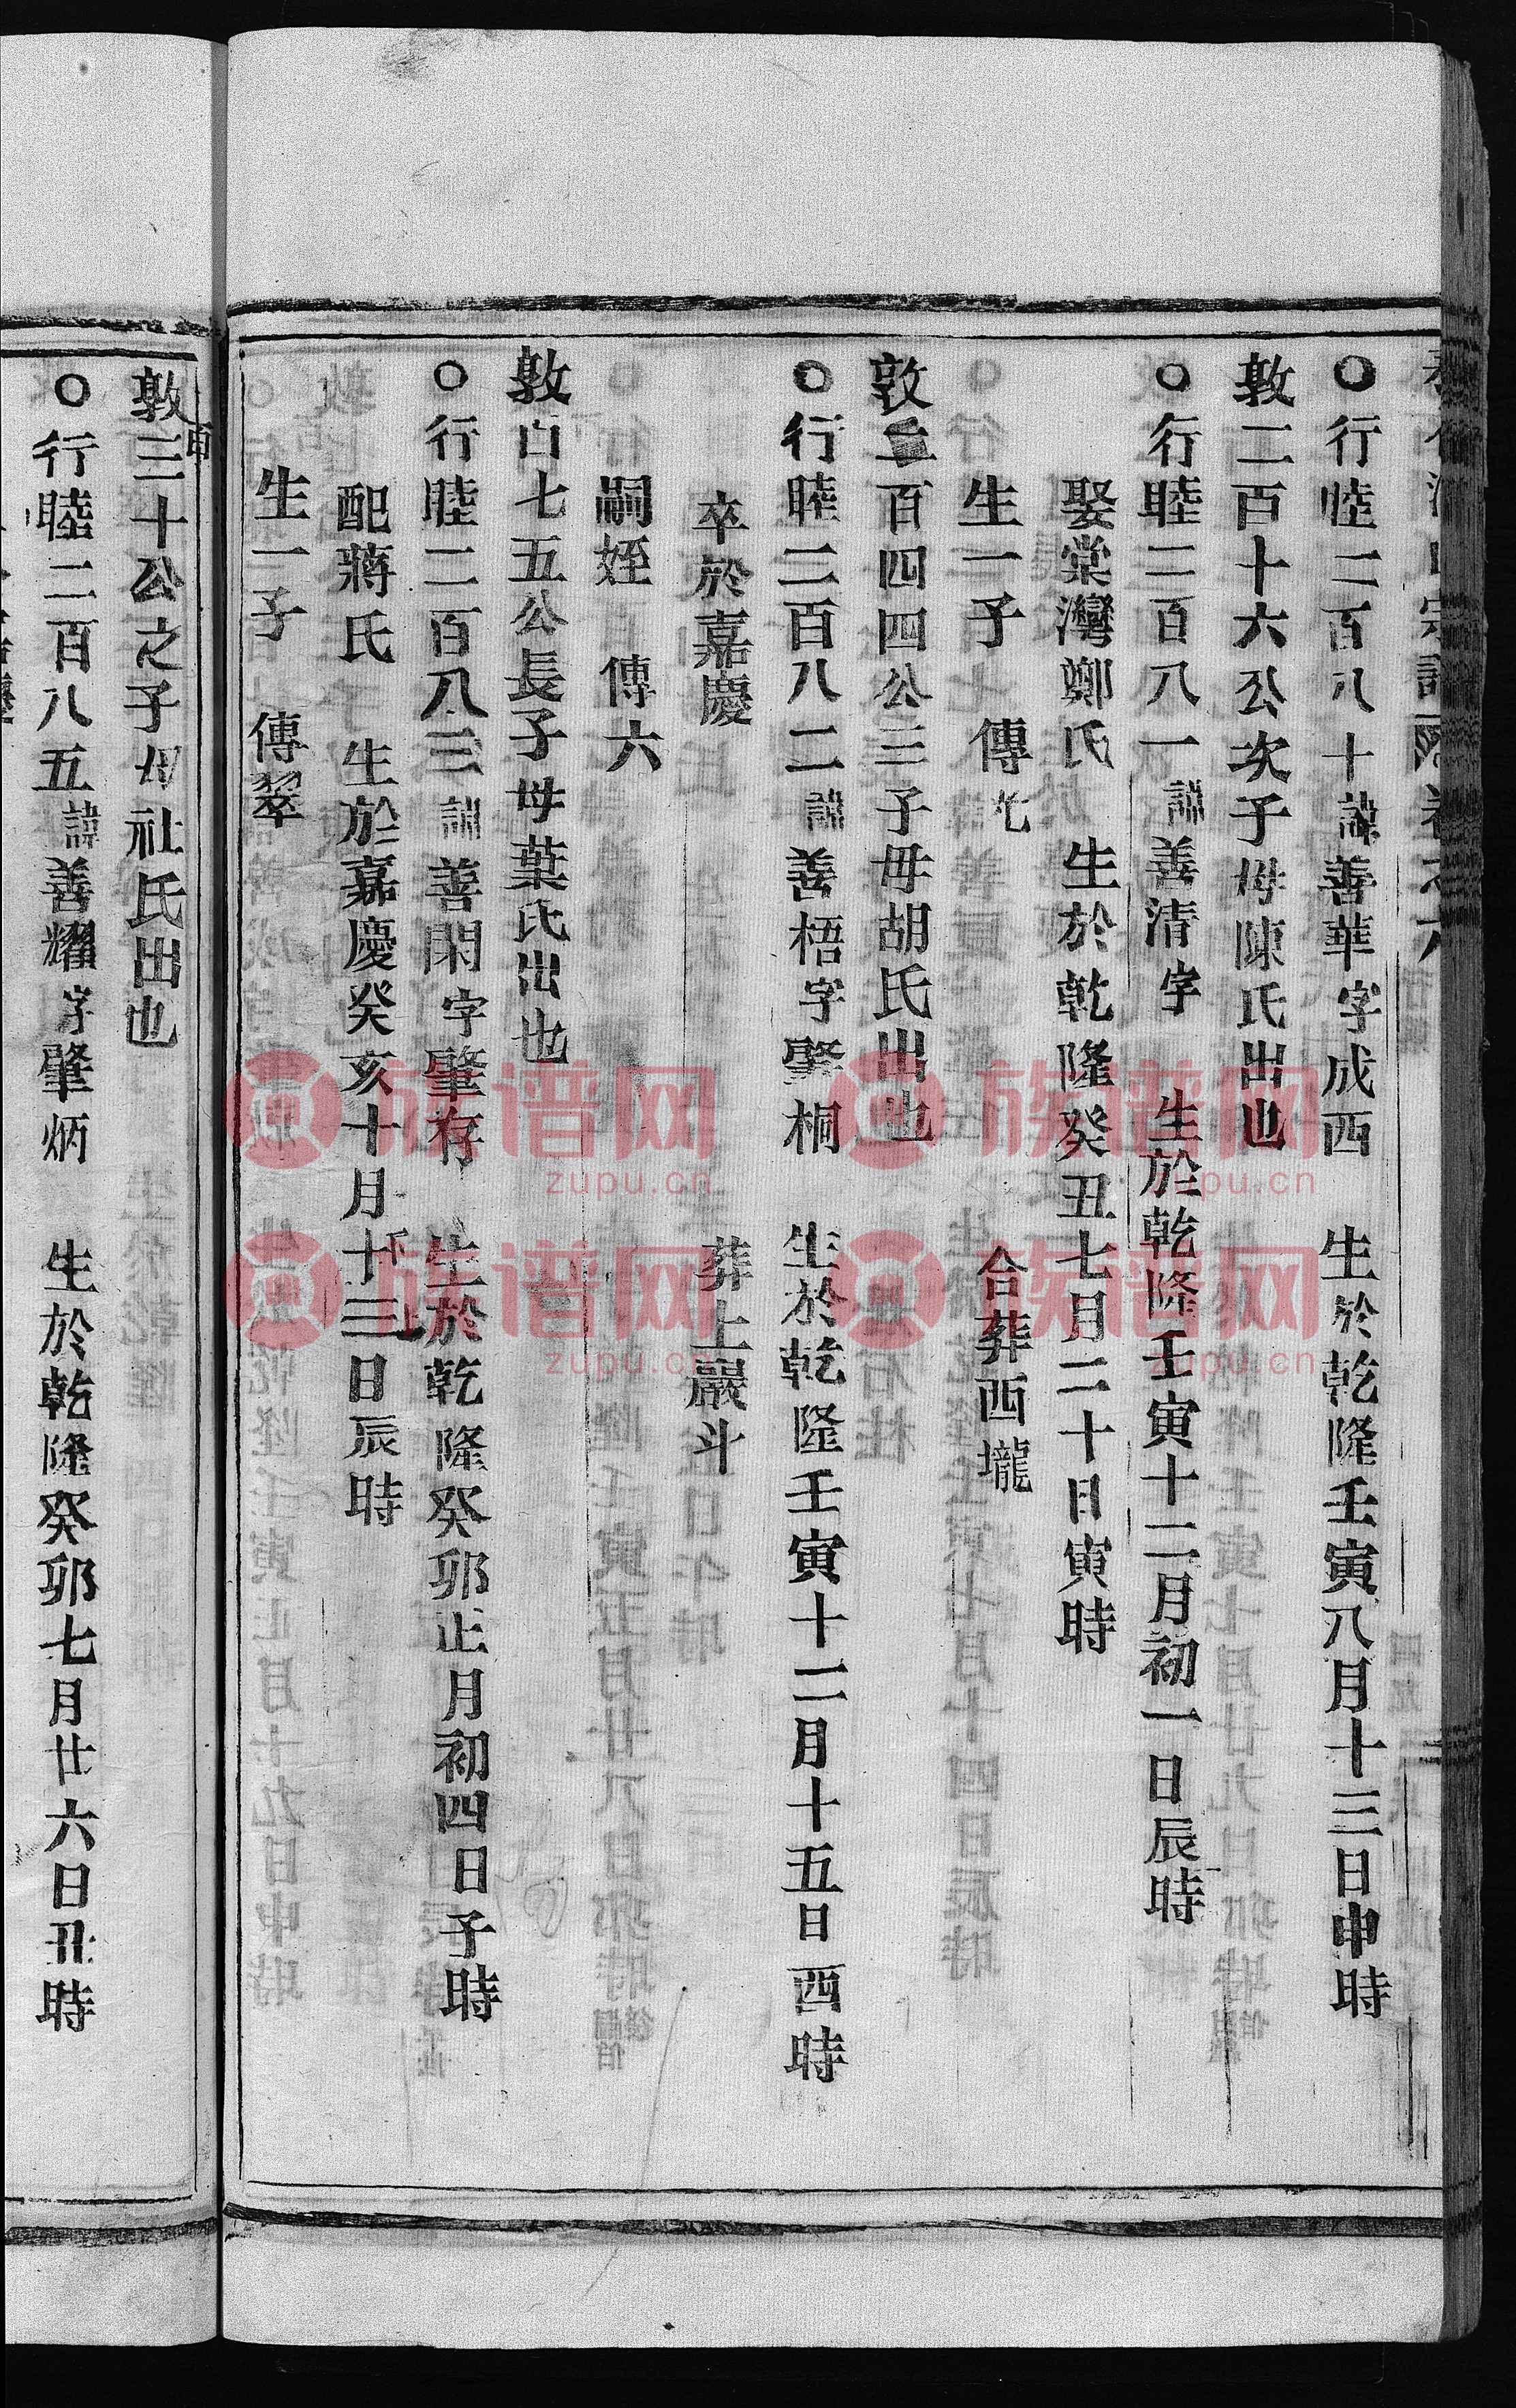 卷之六
○行睦二百八十諱善華字成西　生於乾隆壬寅八月十三日申時
敦二百十六公次子母陳氏出也
○行睦二百八一諱善清字　生於乾隆壬寅十二月初一日辰時
娶棠灣鄭氏　生於乾隆癸丑七月二十日寅時
生一子　傳　合葬西壠
敦二百四四公三子毋胡氏出也
○行睦二百八二諱善梧字肇桐　生於乾隆壬寅十二月十五日酉時
卒於嘉慶　葬上嚴斗
嗣姪　傳六
敦百七五公長子母葉氏出也
○行睦二百八三諱善閑字肇存　生於乾隆癸卯正月初四日子時
配蔣氏　生於嘉慶癸亥十月十三日辰時
生一子　傳翠
敦三十公之子母社氏出也
○行睦二百八五諱善耀字肇炳　生於乾隆癸卯七月廿六日丑時
族谱网
zupu.cn
族谱网
zupu.cn
族谱网
zupu.cn
族谱网
zupu.cn